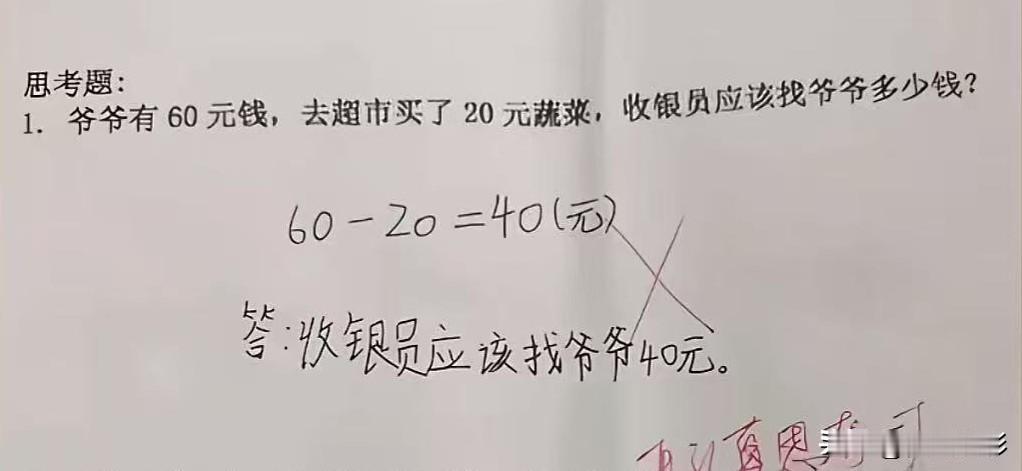 思考题：
1. 爷爷有 60 元钱，去超市买了 20 元蔬菜，收银员应该找爷爷多少钱？
60－20＝40(元)
答：收银员应该找爷爷40元。